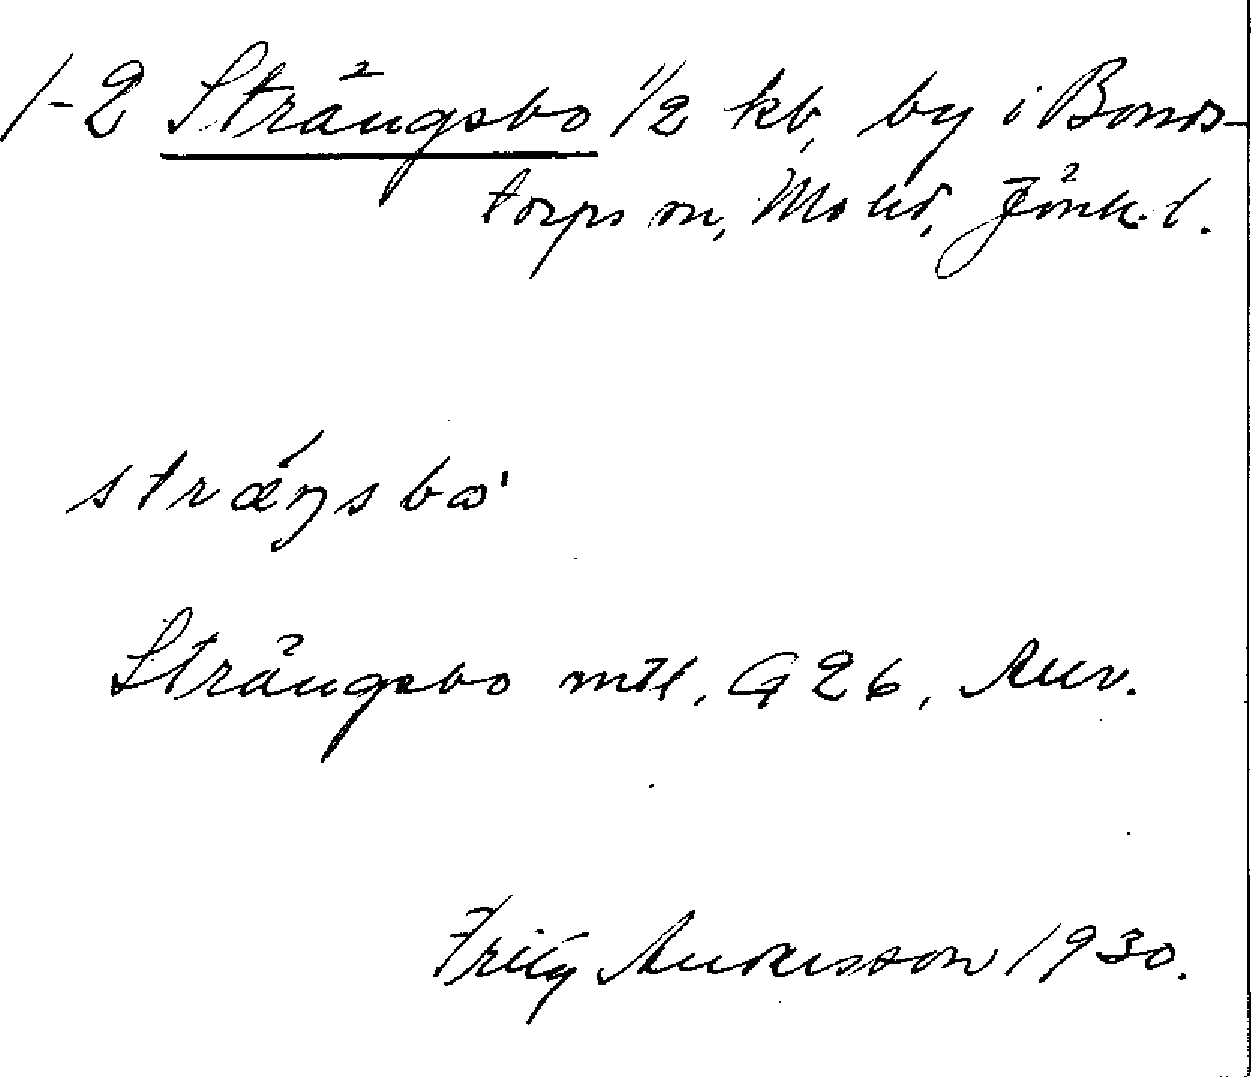 1-2 Strängsbo 1/2 kb, by i Bonds-
torps sn, Mo hd, Jönk. l.
stræŋsbo
Strängsbo mtl, G 26, Anv.
Fritz Andersson 1930.